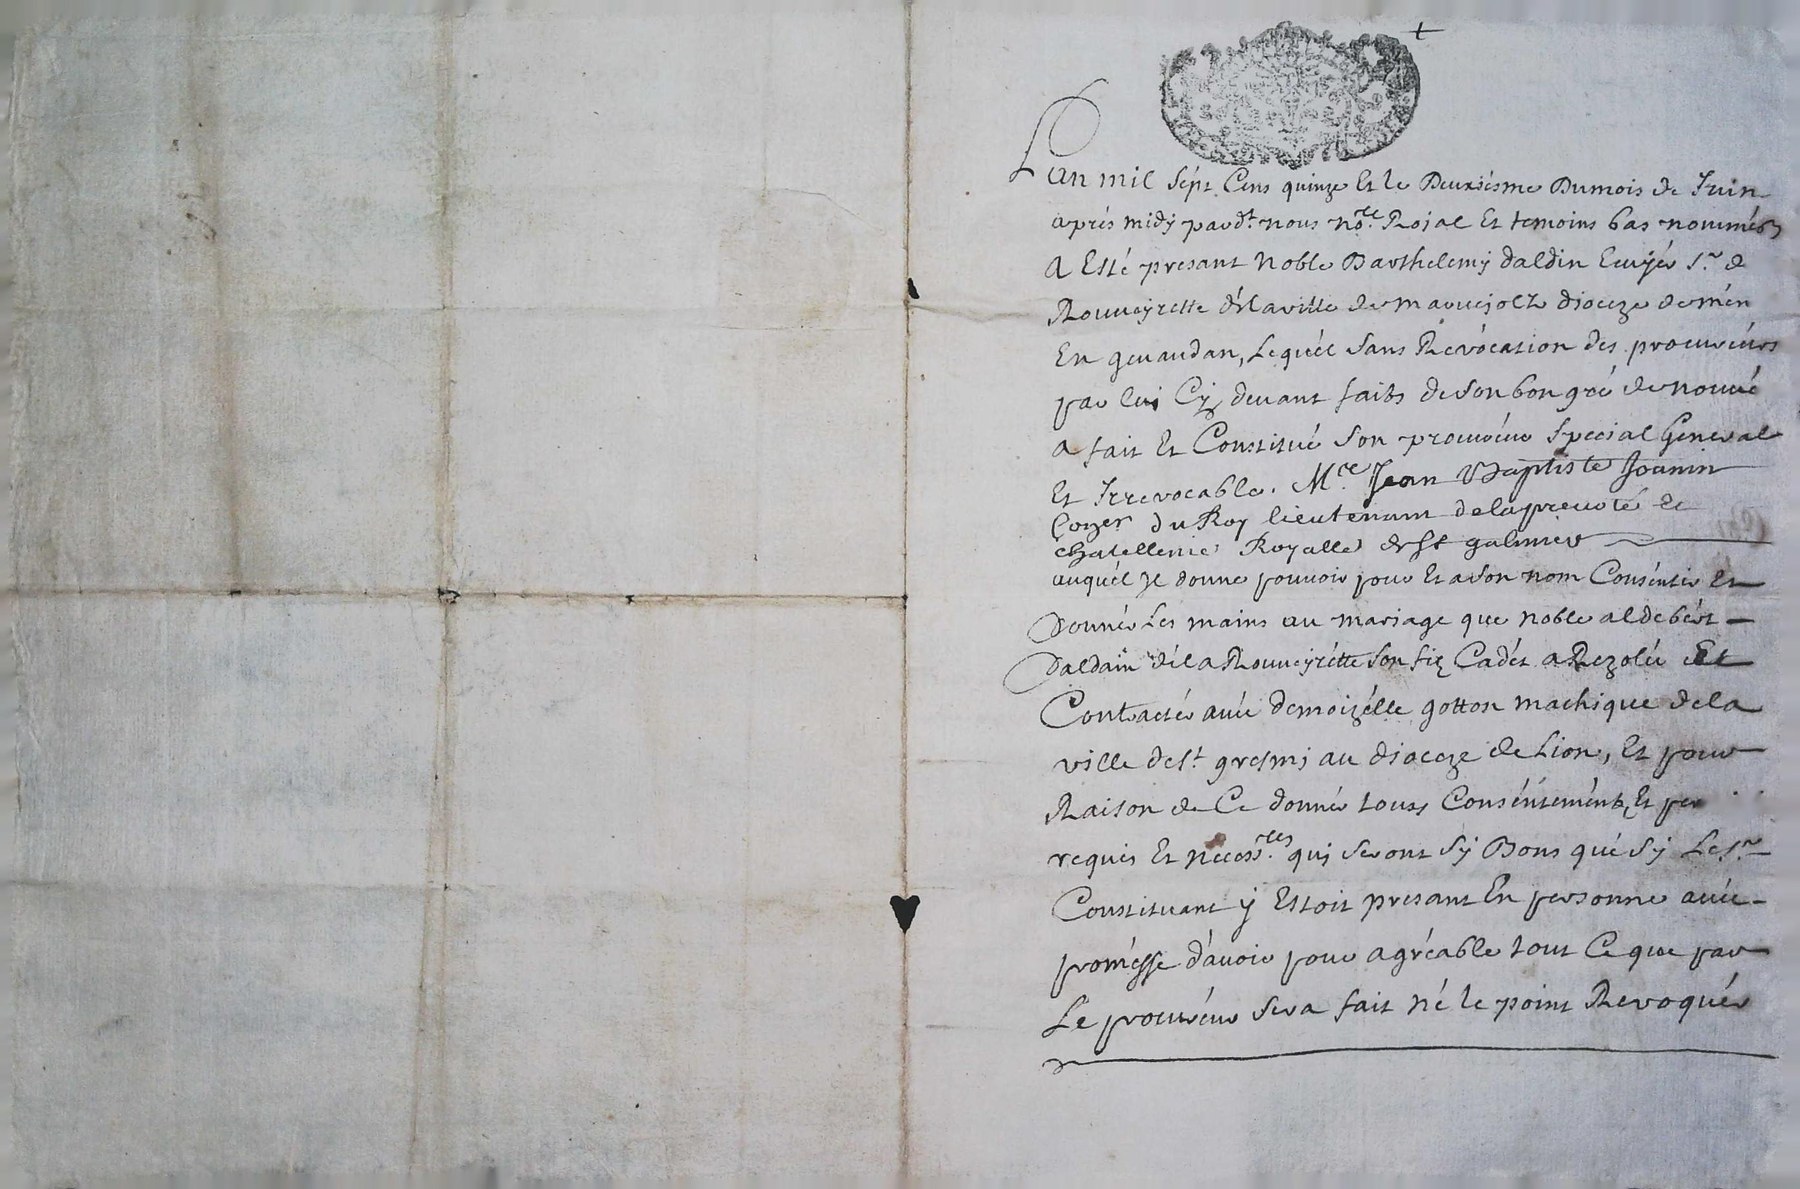 L'an mil sépt Cens quinze Et le Deuxiésme Dumois de Juin
aprés midÿ pardt. nous nore. Roial Et temoins bas nommés
A Esté presant Noble Barthelemÿ daldin Ecuÿér Sr. de
Rouveÿrette délaville de maruejolz dioceze de mên
En gevaudan, Lequél sans Révocation des procuréurs
par lui Cÿ devant faits de son bon gré de nouvé
A fait Et Constitué son procuréur special General
Et Irrevocable. Mre. Jean Baptiste Jounin
Coner du Roy lieutenant delaprevoté et
chatellenie Royalle de st galmier
auquél Il donne pouvoir pour Et a son nom Conséntir Et
Donnér Les mains au mariage que noble aldebért
Daldain déla Rouveÿrétte son fiz Cadét a Rezolú Et
Contractér avéc demoizélle gotton machique dela
ville de st. gresmi au dioceze de Lion, Et pour
Raison de Ce donnér tous Conséntéménts Et
requis Et necessres. qui seront sÿ Bons qué sÿ Le sr.
Constituant ÿ Estoit presant En personne avéc
proméssse d'avoir pour agréable tout Ce que par
Le procuréur sera fait Né le point Revoquér